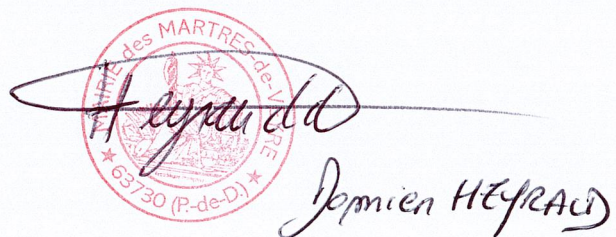 MAIRIE des MARTRES-de-VEYRE
★ 63730 (P.-de-D.) ★
Heyraud
Damien HEYRAUD